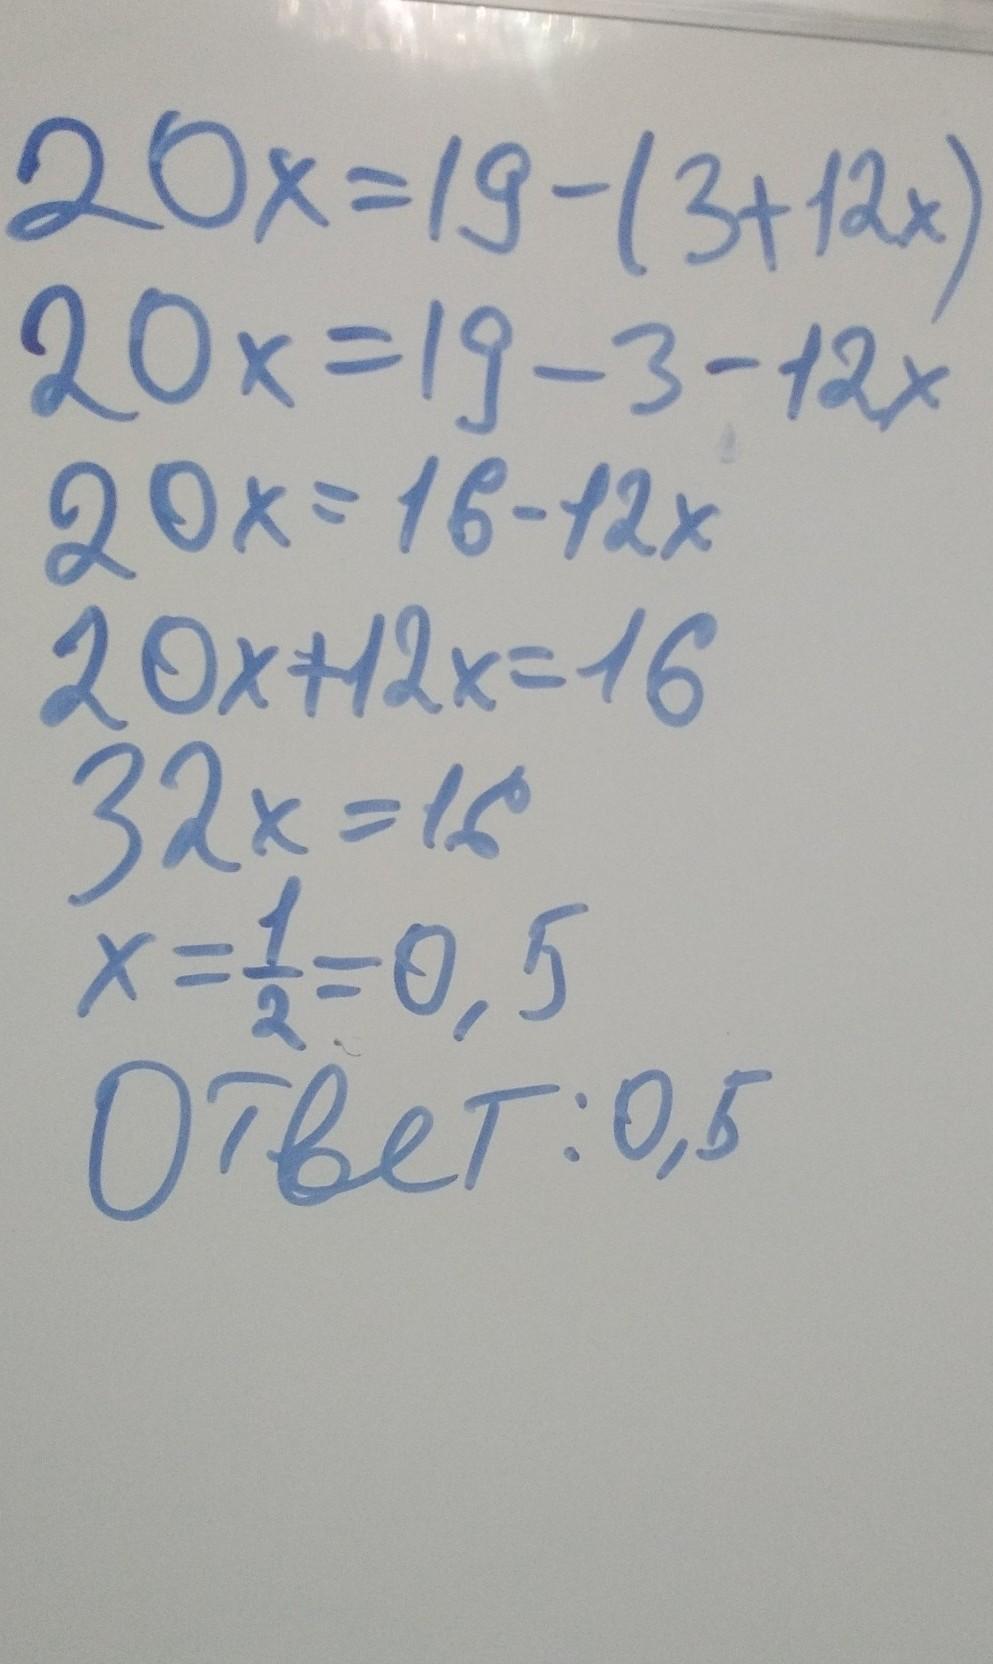 20x=19-(3+12x)
20x=19-3-12x
20x=16-12x
20x+12x=16
32x=16
x=1/2=0,5
Ответ:0,5